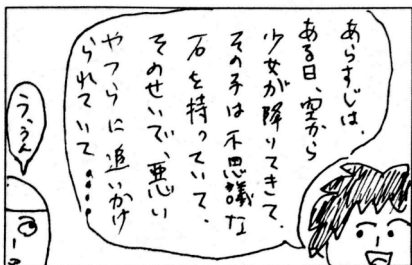 あらすじは、
ある日、空から
少女が降りてきて、
その子は不思議な
石を持っていて、
そのせいで、悪い
やつらに追いかけ
られていて••••
う、うん